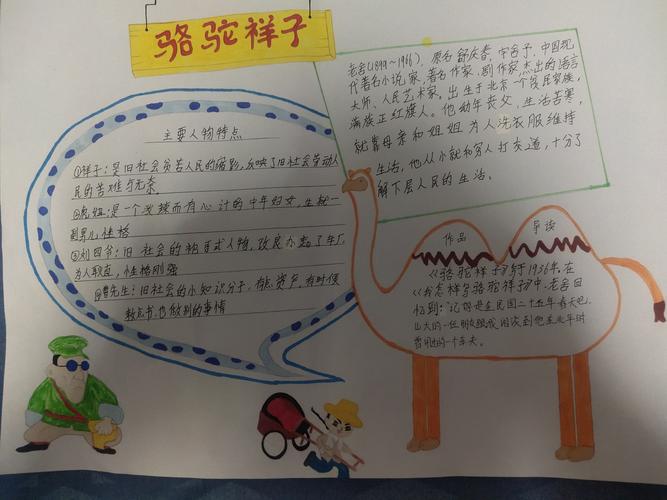 骆驼祥子
老舍(1899~1966),原名舒庆春,字舍予,中国现
代著名小说家,著名作家,剧作家,杰出的语言
大师、人民艺术家,出生于北京一个贫民家族,
满族正红旗人。他幼年丧父,生活苦寒,
就靠母亲和姐姐为人洗衣服维持
生活,他从小就和穷人打交道,十分了
解下层人民的生活。
主要人物特点
①祥子:是旧社会贫苦人民的缩影,反映了旧社会劳动人
民的苦难与无奈。
②虎妞:是一个泼辣而有心计的中年妇女,生就一
副男儿性格
③刘四爷:旧社会的袍哥式人物,改良办起了车厂,
为人耿直,性格刚强
④曹先生:旧社会的小知识分子,有点资产,有时候
教点书,也做别的事情
作品 导读
《骆驼祥子》写于1936年,在
《我怎样写骆驼祥子》中,老舍回
忆到:"记得是在民国二十五年春天吧,
山大的一位朋友跟我闲谈到他在北平时
曾用过的一个车夫。